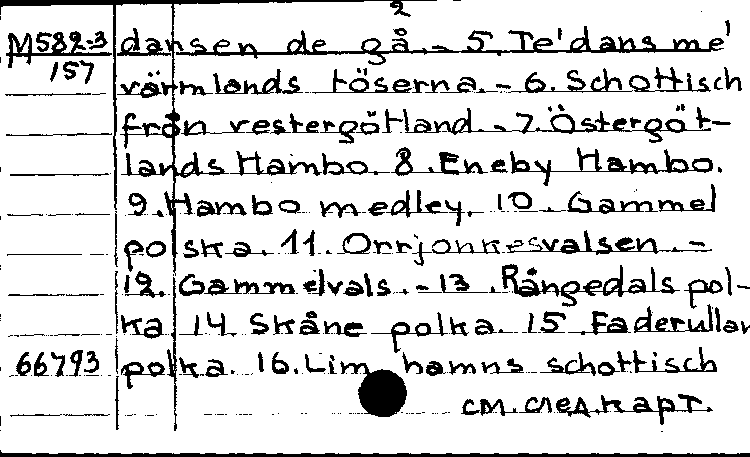 2
M582-3 dansen de gå. - 5. Te'dans me'
157 värmlands töserna. - 6. Schottisch
från vestergötland. - 7. Östergöt-
lands Hambo. 8. Eneby Hambo.
9. Hambo medley. 10. Gammel
polska. 11. Orrjonkesvalsen. -
12. Gammelvals. - 13. Rångedals pol-
ka. 14. Skåne polka. 15. Faderullan
66793 polka. 16. Lim hamns schottisch
см. след. карт.